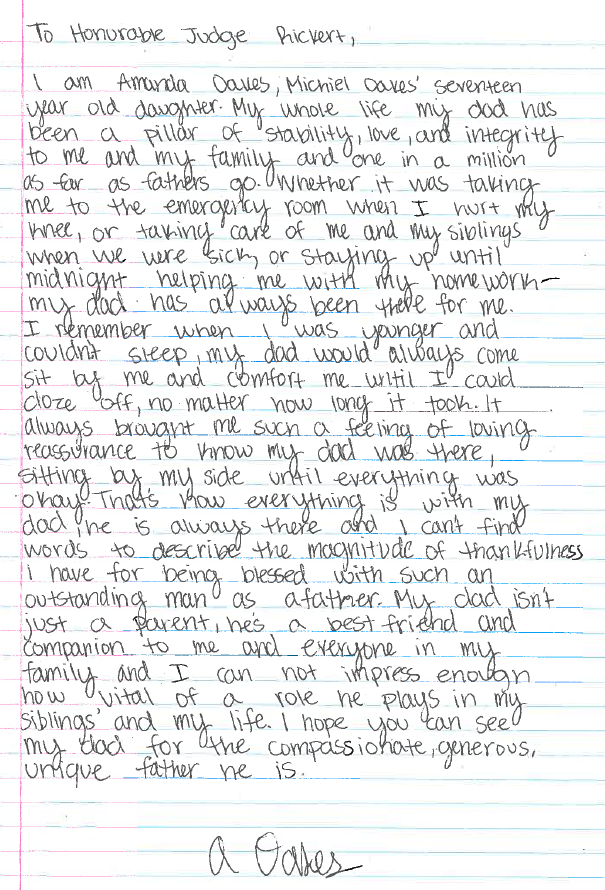 To Honurable Judge Rickert,
I am Amanda Oakes, Michiel Oakes' seventeen
year old daughter. My whole life my dad has
been a pillar of stability, love, and integrity
to me and my family and one in a million
as far as fathers go. Whether it was taking
me to the emergency room when I hurt my
knee, or taking care of me and my siblings
when we were sick, or staying up until
midnight helping me with my homework-
my dad has always been there for me.
I remember when I was younger and
couldn't sleep, my dad would always come
sit by me and comfort me until I could
doze off, no matter how long it took. It
always brought me such a feeling of loving
reassurance to know my dad was there,
sitting by my side until everything was
okay. That's how everything is with my
dad, he is always there and I can't find
words to describe the magnitude of thankfulness
I have for being blessed with such an
outstanding man as a father. My dad isn't
just a parent, he's a best friend and
companion to me and everyone in my
family and I can not impress enough
how vital of a role he plays in my
siblings' and my life. I hope you can see
my dad for the compassionate, generous,
unique father he is.
A Oakes